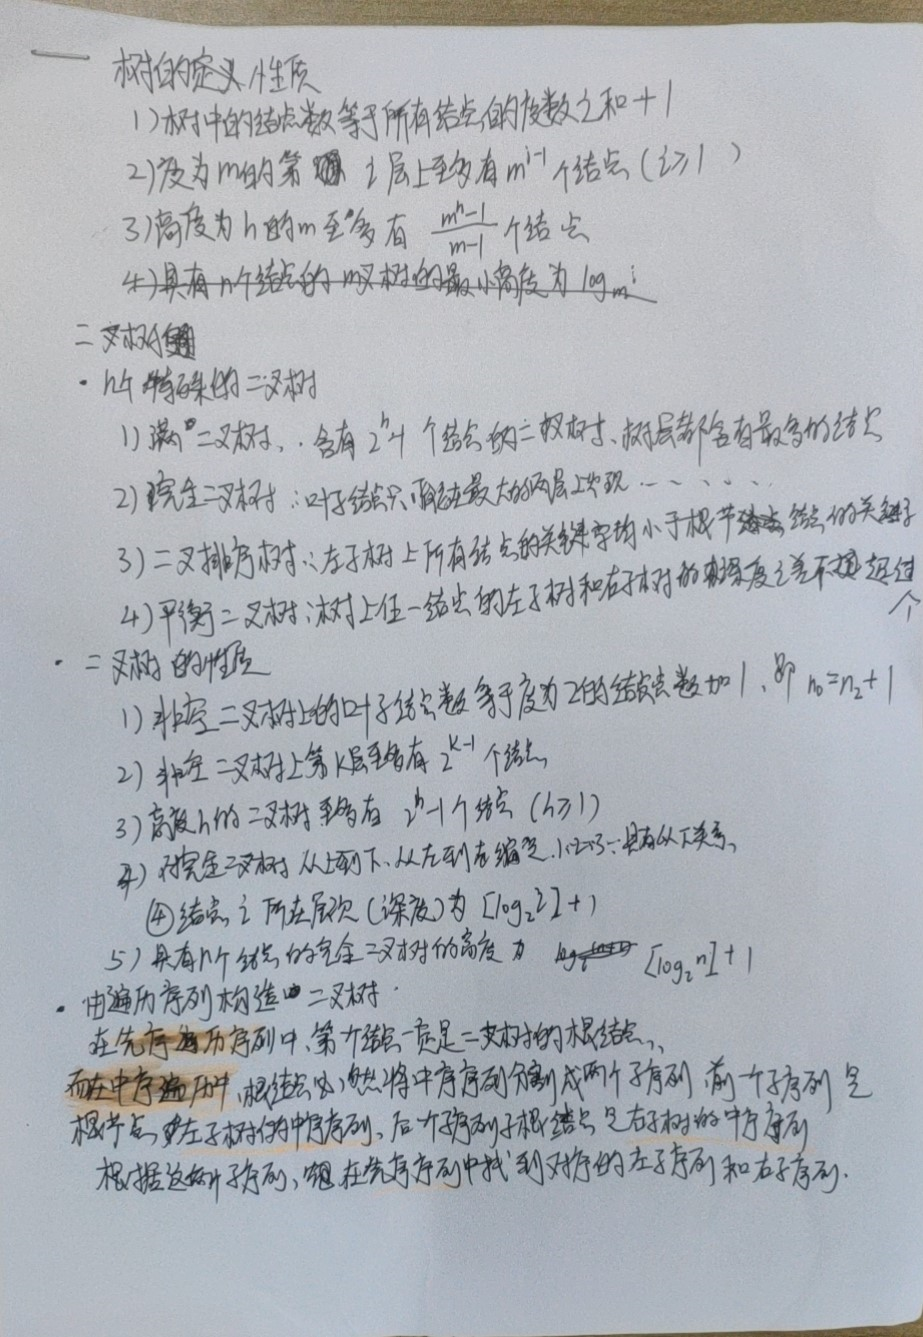 树的定义、性质
1)树中的结点数等于所有结点的度数之和+1
2)度为m的第 i层上至多有m^{i-1}个结点(i≥1)
3)高度为h的m至多有 \frac{m^h-1}{m-1} 个结点
4)具有n个结点的m叉树的最小高度为log_m
二叉树
·几个特殊的二叉树
1)满二叉树、.含有2^h-1个结点的二叉树、树层都含有最多的结点
2)完全二叉树:叶子结点只可能在最大的两层上出现......
3)二叉排序树:左子树上所有结点的关键字均小于根节 结点的关键字
4)平衡二叉树:树上任一结点的左子树和右子树的深度之差不超过
个
·二叉树的性质
1)非空二叉树上的叶子结点数等于度为2的结点数加1、即n_0=n_2+1
2)非空二叉树上第k层至多有2^{k-1}个结点
3)高度h的二叉树至多有2^h-1个结点(h≥1)
4)对完全二叉树从上到下、从左到右编号.1、2、3…具有以下关系、
④结点i所在层次(深度)为[log_2 i]+1
5)具有n个结点的完全二叉树的高度为 [log_2 n]+1
·由遍历序列构造二叉树.
在先序遍历序列中、第一个结点一定是二叉树的根结点、
而在中序遍历中,根结点必然将中序序列分割成两个子序列,前一个子序列是
根节点左子树的中序序列、后一个子序列子根结点是右子树的中序序列
根据这两个子序列、在先序序列中找到对应的左子序列和右子序列.